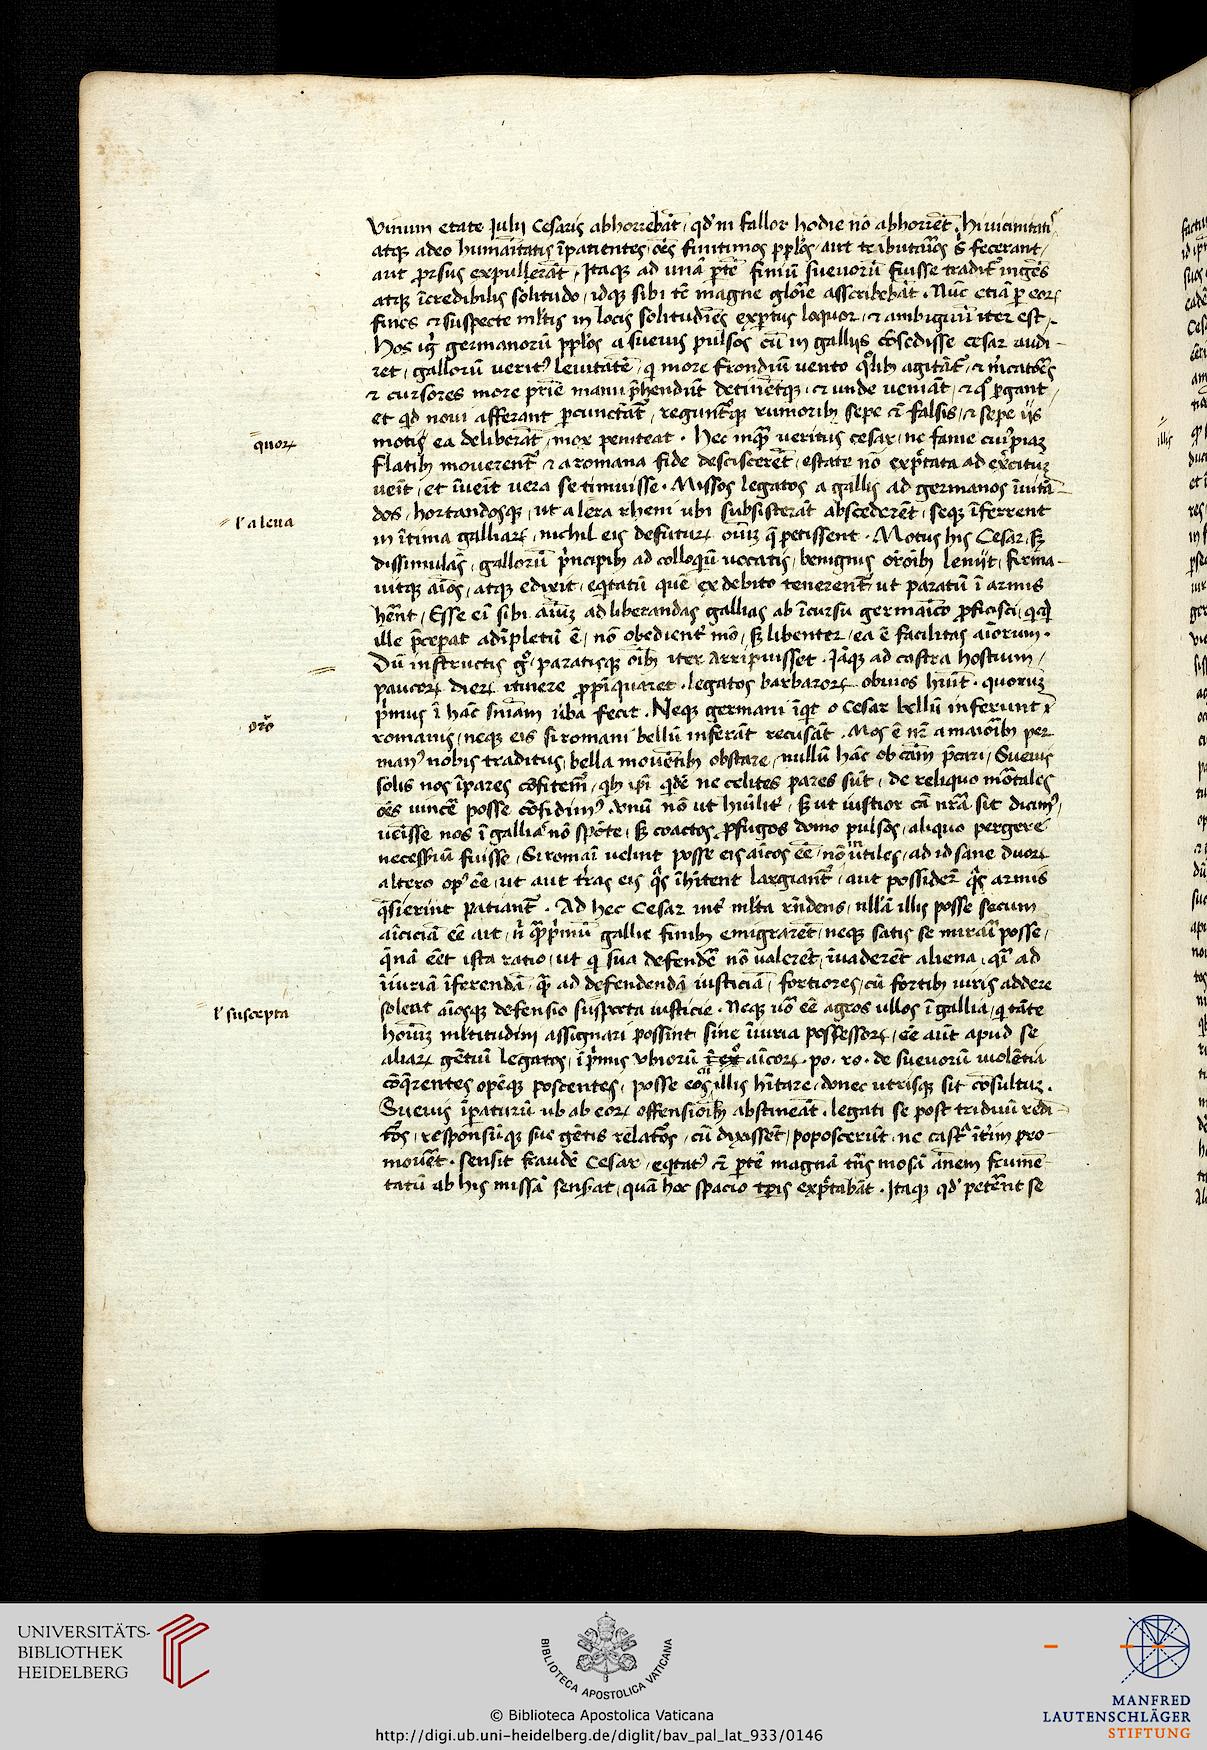 vinum etate Julij Cesaris abhorrebāt / qd' ni fallor hodie nō abhorrēt . hi vicinitatꝭ
atqꝫ adeo humanitatis īpatientes / oēs finitimos ppl'os / aut tributarios s' fecerant /
aut prorsus expullerāt / Itaqꝫ ad unā ptē finiū suevorū fuisse tradit' ingēs
atqꝫ īcredibilis solitudo / idqꝫ sibi tē magne glorie asscribebāt . Nūc etiā p eoꝝ
fines et suspecte ml'tis in locis solitudīes / exptus loquor / et ambiguū iter est /
Hos ig' germanorū ppl'os a suevis pulsos cū in gallijs cōsedisse cesar audi-
ret / gallorū verit' levitatē / qi more frondiū vento ql'ib agitāt' / et m'catōēs
et cursores more prīe manu p'hendūt detinētqꝫ / et unde veniāt / et qo pgant /
et qid novi afferant pcunctāt' / regunt'qꝫ rumoribꝫ sepe cū falsis / et sepe ijs
motis ea deliberāt / mox peniteat . Hec inqꝫ veritus cesar / ne fame cuiuspiaꝫ
flatibꝫ moverent' et a romana fide desciscerēt / estate nō exp'tata ad ex'cituꝫ
venit / et īvenit vera se timuisse . Missos legatos a gallis ad germanos īvitā-
dos / hortandosqꝫ / ut a lera rheni ubi subsisterāt abscederēt / seqꝫ īferrent
in ītima galliaꝝ / nichil eis defuturꝝ oīuꝫ q̄ petissent . Motus his Cesar / sꝫ
dissimulās / gallorū p'ncipibꝫ ad colloqū vocatis / benignis orōibꝫ lenijt / firma-
vitqꝫ aīos / atqꝫ edixit / eqitatū quē ex debito tenerent' ut paratū ī armis
hērent / Esse eī sibi aīuꝫ ad liberandas gallias ab īcursu germanico pficisci / qicqid
ille p'cepat adīpletū ē / nō obedient' mō / sꝫ libenter / ea ē facilitas aīorum .
Dū instructis g° / paratisqꝫ oībꝫ iter arripuisset . Jāqꝫ ad castra hostium /
paucoꝝ dieꝝ itinere ppīquaret . legatos barbaroꝝ obvios hūit . quoruꝫ
p'mus ī hāc sniam v'ba fecit . Neqꝫ germani īqit o Cesar bellū inferunt
romanis / neqꝫ eis si romani bellū inferāt recusāt . Mos ē nr̄ a maioribꝫ per
man' nobis traditus / bella moventibꝫ obstare / nullū hāc ob cām p'cari / Suevis
solis nos īpares cōfitem' / qibꝫ ip'i qidē ne celites pares sūt / de reliquo mortales
oēs vincē posse cōfidim' . Vnū nō ut humilit' / sꝫ ut iustior cā nr̄a sit dicim' /
venisse nos ī galliā nō spōte / sꝫ coactos / pfugos domo pulsos / aliquo pergere
necessariū fuisse / Si romāi velint posse eis aīcos eē / nō inutiles / ad id sane duoꝝ
altero op' eē / ut aut t'ras eis q's īhitent largiant' / aut possider' q's armis
q̄sierint patiant' . Ad hec Cesar int' ml'ta rn̄dens / nullā illis posse secum
aīciciā eē ait / n' qꝫ p'mū gallie finibꝫ emigrarēt / neqꝫ satis se mirari posse /
q̄nā eēt ista ratio / ut qi sua defendē nō valerēt / īvaderēt aliena / qm̄ ad
iniuriā īferendā / qꝫ ad defendendā iusticiā / fortiores / cū fortibꝫ viris addere
soleat aīosqꝫ defensio suspecta iusticie . Neqꝫ vo eē agros ullos ī gallia / qi tāte
hoīuꝫ ml'titudini assignari possint sine iniuria possessoꝝ / eē aūt apud se
aliaꝝ gētiū legatos / īp'mis Vbiorū aīcoꝝ . po . ro . de suevorū violētia
cōq̄rentes opēqꝫ poscentes / posse eos illis hītare / donec utrisqꝫ sit cōsultuꝫ .
Suevis īpaturū ub ab eoꝝ offensionibꝫ abstineāt . legati se post triduū redi-
tos / responsūqꝫ sue gētis relatos / cū dixissēt / poposcerūt / ne castr' īt'im pro-
movēt . sensit fraudē Cesar / eqitat' et ptē magnā tn̄s mosā amnem frumē-
tatū ab his missā senserat / quā hoc spacio tpis exp'tabāt . Itaqꝫ qd' petērnt se
quoꝝ
l' a leva
oro
l' suscepta
UNIVERSITÄTS-
BIBLIOTHEK
HEIDELBERG
BIBLIOTECA APOSTOLICA VATICANA
© Biblioteca Apostolica Vaticana
http://digi.ub.uni-heidelberg.de/diglit/bav_pal_lat_933/0146
MANFRED
LAUTENSCHLÄGER
STIFTUNG